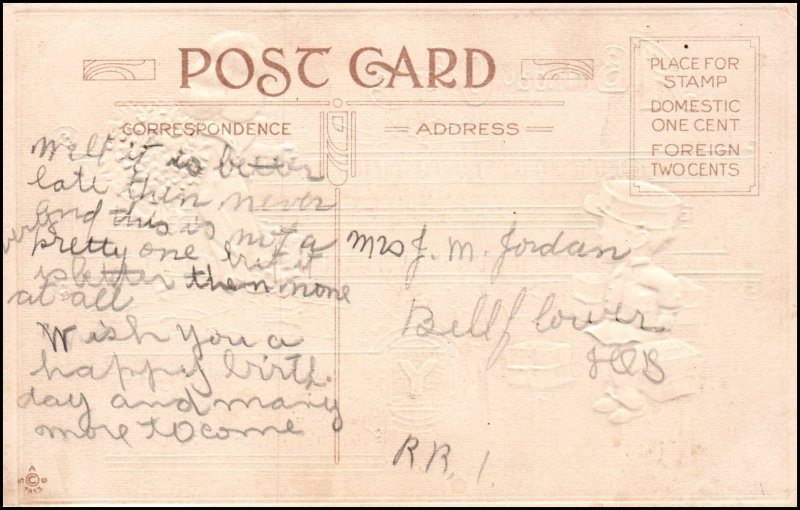 POST CARD
CORRESPONDENCE
ADDRESS
PLACE FOR
STAMP
DOMESTIC
ONE CENT
FOREIGN
TWO CENTS
Well it is better
late then never
And this is not a
very
pretty one but it
is better then none
at all
Wish you a
happy birth
day and many
more to come
Mrs J. M. Jordan
Bellflower
Ills
R.R. 1.
A
S © S
1913